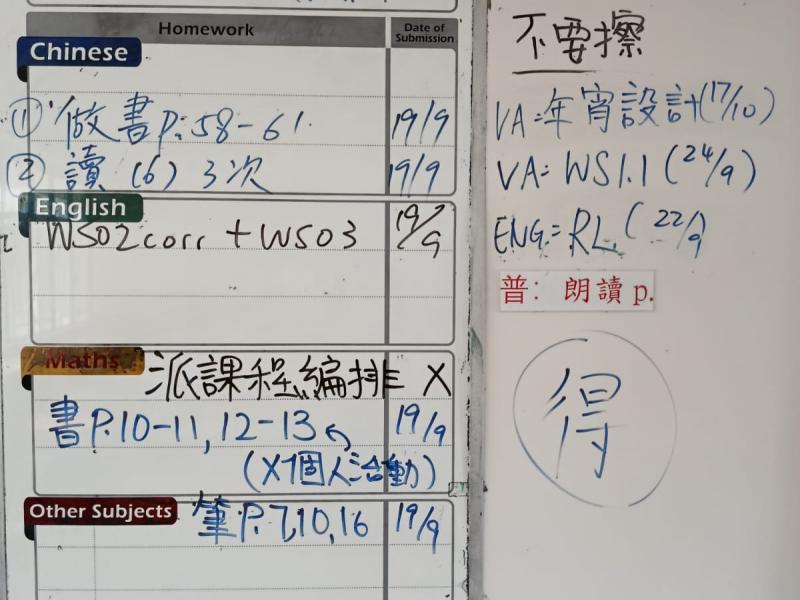 Homework
Date of Submission
Chinese
① 做書P.58-61. 19/9
② 讀(6)3次 19/9
English
WS02corr + WS03 19/9
Maths
派課程編排 X
書P.10-11, 12-13 19/9
(X1個人活動)
Other Subjects
筆P.7,10,16 19/9
不要擦
VA=年宵設計(17/10)
VA=WS1.1(24/9)
ENG.=RL.(22/9)
普：朗讀 p.
得